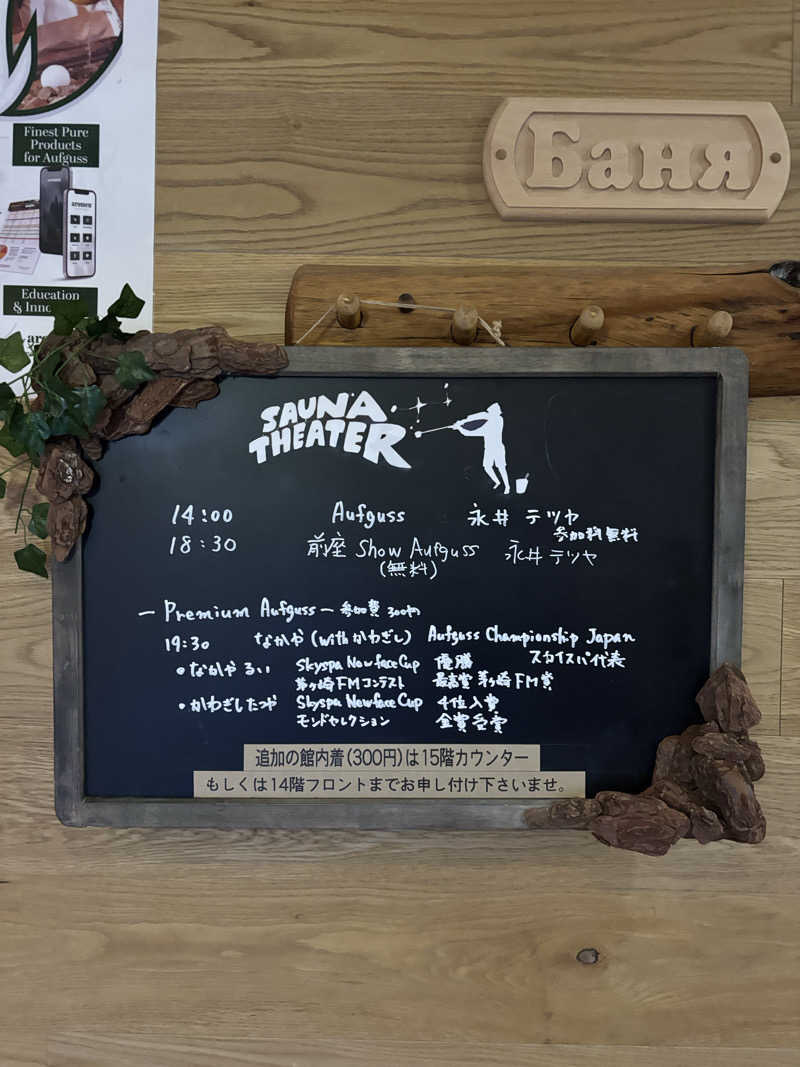 Finest Pure
Products
for Aufguss
Education
& Inno
Баня
SAUNA
THEATER
14:00 Aufguss 永井 テツヤ
参加料無料
18:30 前座 Show Aufguss 永井 テツヤ
(無料)
ー Premium Aufguss ー 参加費 300円
19:30 なかや (with かわぎし) Aufguss Championship Japan
スカイスパ代表
・なかやるい Skyspa Newface Cup 優勝
茅ヶ崎FMコンテスト 最高賞 茅ヶ崎FM賞
・かわぎしたつや Skyspa Newface Cup 4位入賞
モンドセレクション 金賞受賞
追加の館内着(300円)は15階カウンター
もしくは14階フロントまでお申し付け下さいませ。